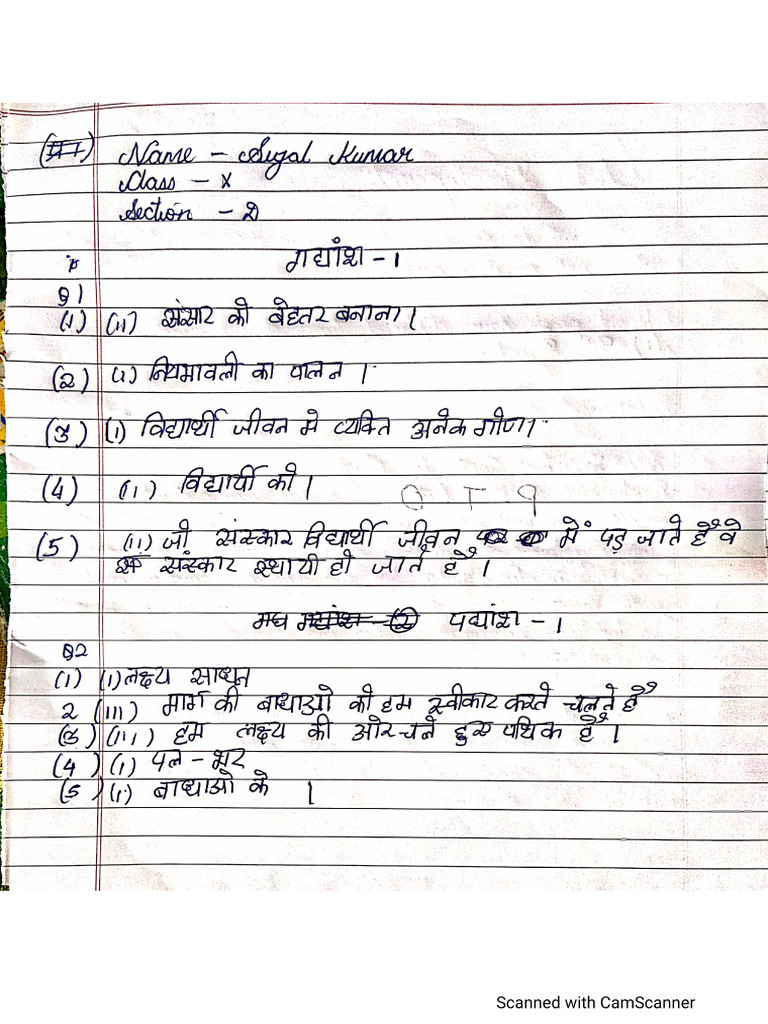 Name - Sujal Kumar
Class - X
Section - D
गद्यांश - 1
Q1
(1) (ii) संसार को बेहतर बनाना।
(2) (i) नियमावली का पालन।
(3) (i) विद्यार्थी जीवन मे व्यक्ति अनेक गौण।
(4) (ii) विद्यार्थी को।
(5) (ii) जो संस्कार विद्यार्थी जीवन में पड़ जाते है वे
संस्कार स्थायी हो जाते है।
पद्यांश - 1
Q2
(1) (i) लक्ष्य साधन
2 (iii) मार्ग की बाधाओ को हम स्वीकार करते चलते है
(3) (iii) हम लक्ष्य की ओर चने हुए पथिक है।
(4) (i) पल - भर
(5) (i) बाधाओ के ।
Scanned with CamScanner